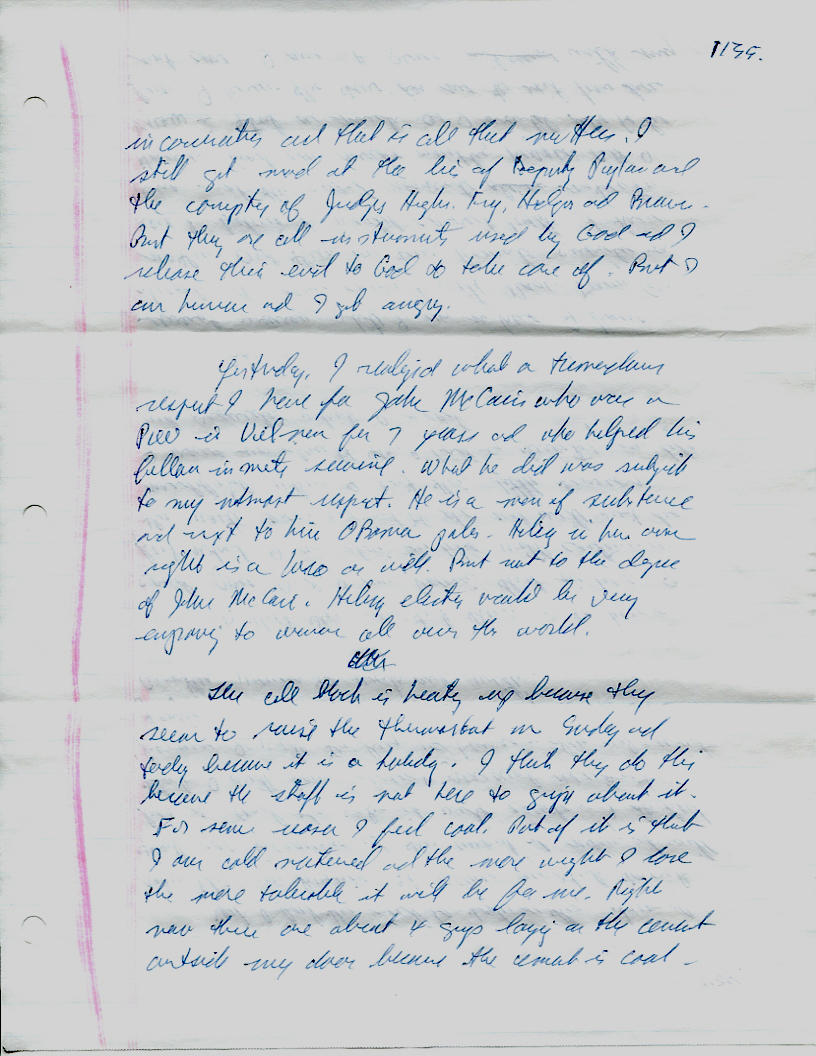 1155.
and that is all that matters. I
still get mad at the lie of Deputy and
the of Judges High, Fry, and Brown.
But they are all instruments used by God and I
release this evil to God to take care of. But I
am human and I get angry.
Yesterday, I realized what a tremendous
respect I have for John McCain who was a
POW in for 7 years and who helped his
fellow inmates survive. What he did was
to my utmost respect. He is a man of substance
and next to him OBama pales. Hilary in her own
right is a hero as well. But not to the degree
of John McCain. Hilary would be very
to women all over the world.
The cell block is heating up because they
seem to raise the thermostat on Sunday and
today because it is a holiday. I think they do this
because the staff is not here to gripe about it.
For some reason I feel cool. Part of it is that
I am cold natured and the more weight I lose
the more tolerable it will be for me. Right
now there are about 4 guys laying on the cement
outside my door because the cement is cool -